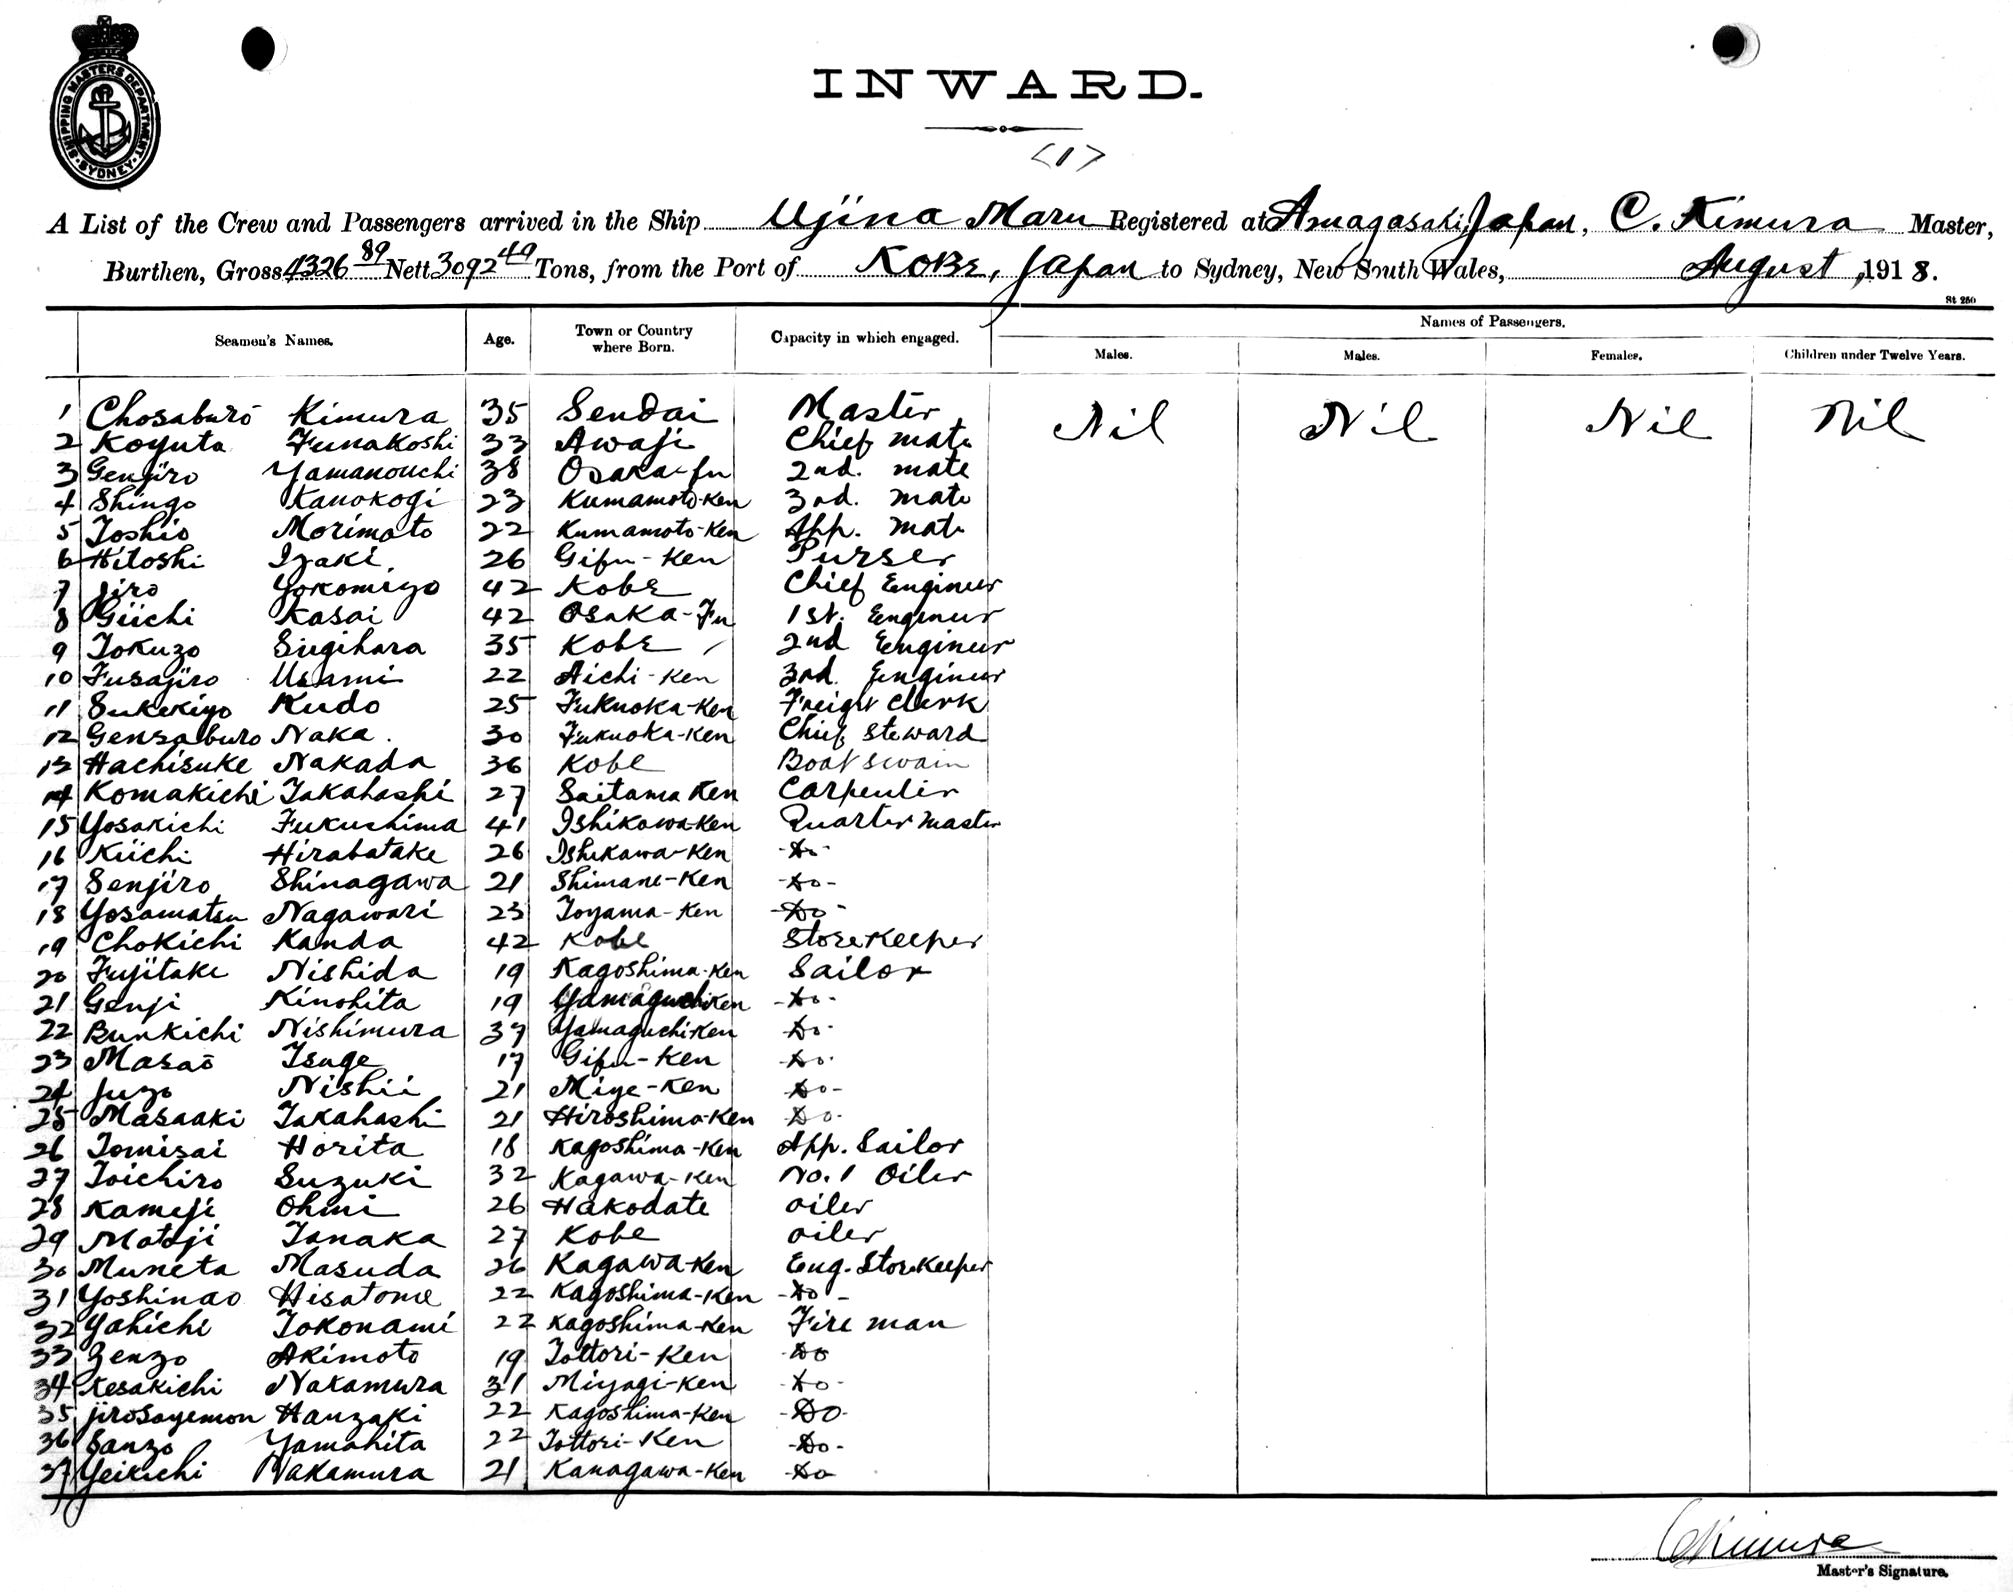 SHIPPING MASTERS DEPARTMENT
SYDNEY
INWARD.
<1>
A List of the Crew and Passengers arrived in the Ship Ujina Maru Registered at Amagasaki, Japan, C. Kimura Master,
Burthen, Gross 4326 89 Nett 3092 49 Tons, from the Port of Kobe, Japan to Sydney, New South Wales, August, 1918.
St 250
Seamen's Names. Age. Town or Country where Born. Capacity in which engaged. Names of Passengers.
Males. Males. Females. Children under Twelve Years.
1 Chosaburō Kimura 35 Sendai Master Nil Nil Nil Nil
2 Koyuta Funakoshi 33 Awaji Chief mate
3 Genjiro Yamanouchi 38 Osaka-fu 2nd. mate
4 Shingo Kanokogi 23 Kumamoto-Ken 3rd. mate
5 Toshio Morimoto 22 Kumamoto-Ken App. mate
6 Hitoshi Izaki 26 Gifu-Ken Purser
7 Jiro Yokomizo 42 Kobe Chief Engineer
8 Giichi Kasai 42 Osaka-Fu 1st. Engineer
9 Tokuzo Sugihara 35 Kobe 2nd Engineer
10 Fusajiro Usami 22 Aichi-Ken 3rd. Engineer
11 Sukekiyo Kudo 25 Fukuoka-Ken Freight Clerk
12 Gensaburo Naka. 30 Fukuoka-Ken Chief Steward
13 Hachisuke Nakada 36 Kobe Boatswain
14 Komakichi Takahashi 27 Saitama Ken Carpenter
15 Yosakichi Fukushima 41 Ishikawa-Ken Quarter master
16 Kiichi Hirabatake 26 Ishikawa-Ken -Do-
17 Senjiro Shinagawa 21 Shimane-Ken -Do-
18 Yosamatsu Nagawari 23 Toyama-Ken -Do-
19 Chokichi Kanda 42 Kobe Storekeeper
20 Fujitake Nishida 19 Kagoshima-Ken Sailor
21 Genji Kinohita 19 Yamaguchi Ken -Do-
22 Bunkichi Nishimura 37 Yamaguchi Ken -Do-
23 Masaō Tsuge 17 Gifu-Ken -Do-
24 Juzo Nishii 21 Miye-Ken -Do-
25 Masaaki Takahashi 21 Hiroshima-Ken -Do-
26 Tomisai Horita 18 Kagoshima-Ken App. Sailor
27 Toichiro Suzuki 32 Kagawa-Ken No. 1 Oiler
28 Kameji Ohmi 26 Hakodate oiler
29 Motoji Tanaka 27 Kobe oiler
30 Muneta Masuda 26 Kagawa-Ken Eng. Storekeeper
31 Yoshinao Hisatome 22 Kagoshima-Ken -Do-
32 Yahichi Tokonami 22 Kagoshima-Ken Fire man
33 Zenzo Akimoto 19 Tottori-Ken -Do
34 Kesakichi Nakamura 31 Miyagi-Ken -Do-
35 Jirosayemon Hanzaki 22 Kagoshima-Ken -Do-
36 Sanzo Yamahita 22 Tottori-Ken -Do-
37 Yeikichi Nakamura 21 Kanagawa-Ken -Do
C Kimura
Master's Signature.